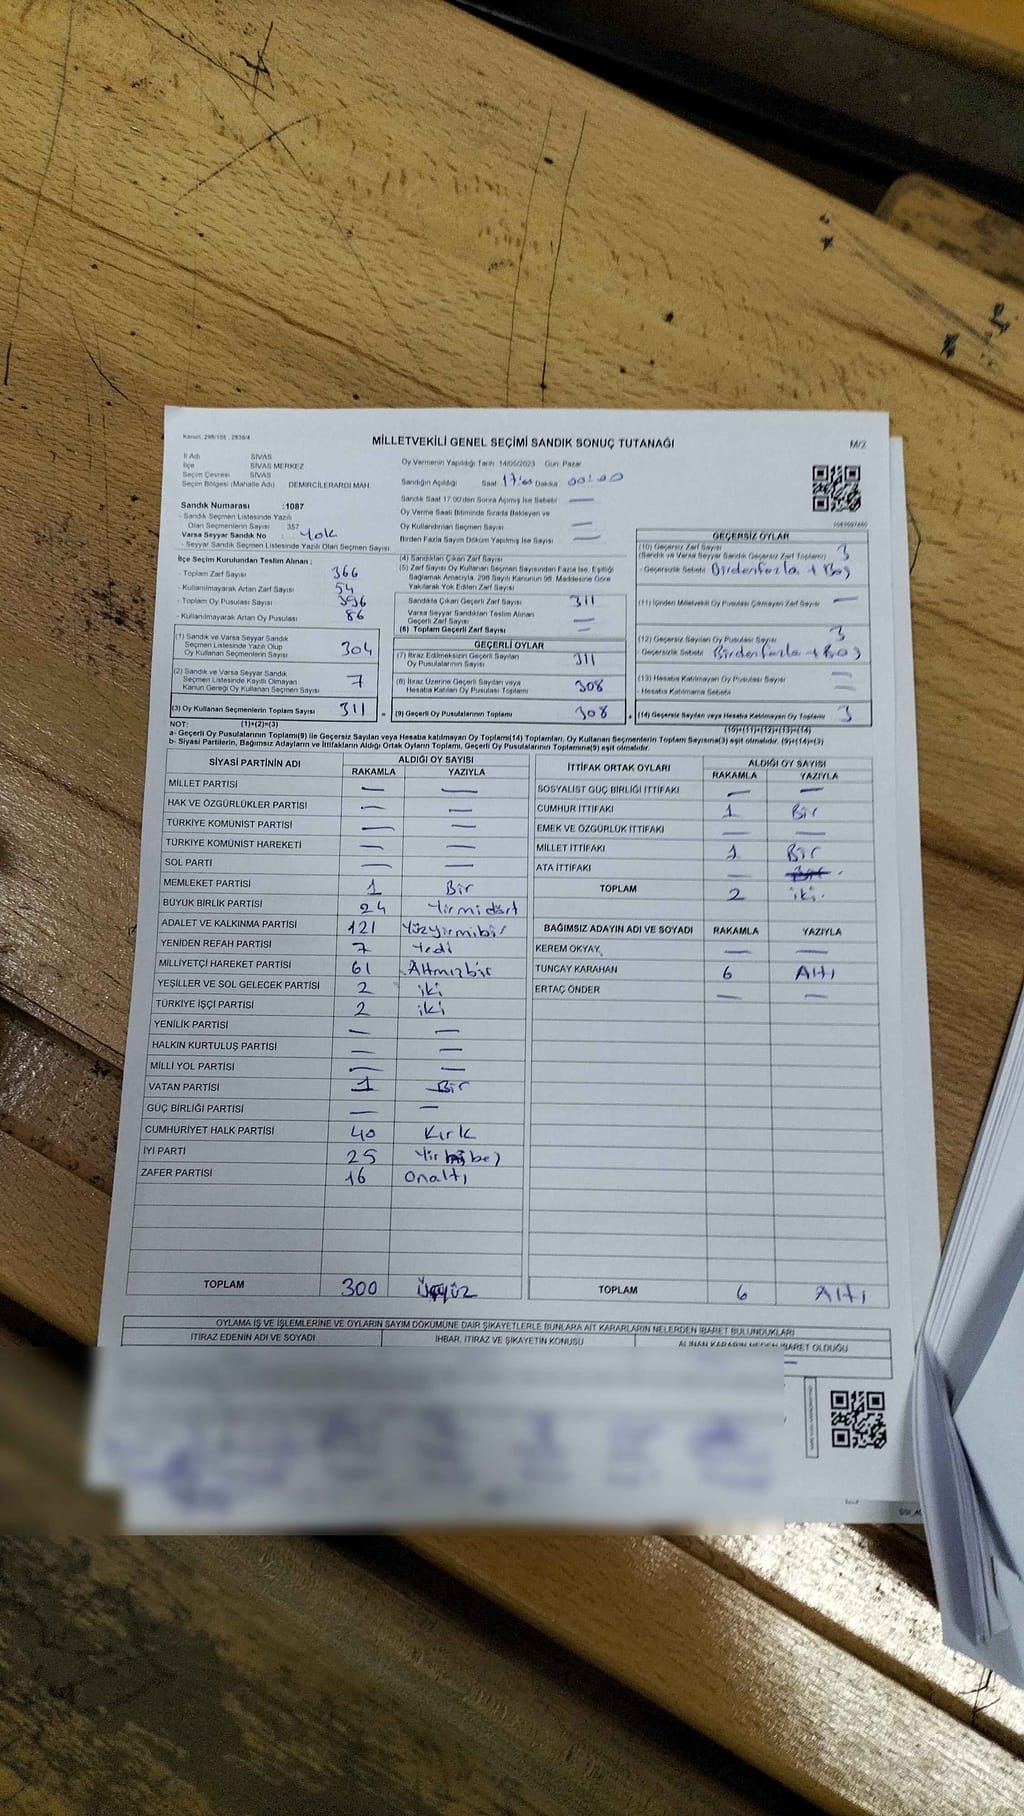 Kanun: 298/105 , 2839/4
MİLLETVEKİLİ GENEL SEÇİMİ SANDIK SONUÇ TUTANAĞI
M/2
İl Adı SİVAS
İlçe SİVAS MERKEZ
Seçim Çevresi SİVAS
Seçim Bölgesi (Mahalle Adı) DEMİRCİLERARDI MAH.
Sandık Numarası :1087
- Sandık Seçmen Listesinde Yazılı
Olan Seçmenlerin Sayısı : 357
Varsa Seyyar Sandık No : Yok
- Seyyar Sandık Seçmen Listesinde Yazılı Olan Seçmen Sayısı
Oy Vermenin Yapıldığı Tarih 14/05/2023 Gün: Pazar
Sandığın Açıldığı Saat 17:00 Dakika 00:00
Sandık Saat 17.00'den Sonra Açılmış İse Sebebi —
Oy Verme Saati Bitiminde Sırada Bekleyen ve
Oy Kullandırılan Seçmen Sayısı —
Birden Fazla Sayım Döküm Yapılmış İse Sayısı —
İlçe Seçim Kurulundan Teslim Alınan ;
- Toplam Zarf Sayısı 366
- Kullanılmayarak Artan Zarf Sayısı 54
- Toplam Oy Pusulası Sayısı 396
- Kullanılmayarak Artan Oy Pusulası 86
(1) Sandık ve Varsa Seyyar Sandık
Seçmen Listesinde Yazılı Olup
Oy Kullanan Seçmenlerin Sayısı 304
(2) Sandık ve Varsa Seyyar Sandık
Seçmen Listesinde Kayıtlı Olmayan
Kanun Gereği Oy Kullanan Seçmen Sayısı 7
(3) Oy Kullanan Seçmenlerin Toplam Sayısı 311
(4) Sandıktan Çıkan Zarf Sayısı
(5) Zarf Sayısı Oy Kullanan Seçmen Sayısından Fazla İse, Eşitliği
Sağlamak Amacıyla, 298 Sayılı Kanunun 98. Maddesine Göre
Yakılarak Yok Edilen Zarf Sayısı
Sandıkta Çıkan Geçerli Zarf Sayısı 311
Varsa Seyyar Sandıktan Teslim Alınan
Geçerli Zarf Sayısı —
(6) Toplam Geçerli Zarf Sayısı —
GEÇERLİ OYLAR
(7) İtiraz Edilmeksizin Geçerli Sayılan
Oy Pusulalarının Sayısı 311
(8) İtiraz Üzerine Geçerli Sayılan veya
Hesaba Katılan Oy Pusulası Toplamı 308
(9) Geçerli Oy Pusulalarının Toplamı 308
GEÇERSİZ OYLAR
(10) Geçersiz Zarf Sayısı
(Sandık ve Varsa Seyyar Sandık Geçersiz Zarf Toplamı) 3
- Geçersizlik Sebebi Birdenfazla + Boş
(11) İçinden Milletvekili Oy Pusulası Çıkmayan Zarf Sayısı —
(12) Geçersiz Sayılan Oy Pusulası Sayısı 3
- Geçersizlik Sebebi Birdenfazla + Boş
(13) Hesaba Katılmayan Oy Pusulası Sayısı —
- Hesaba Katılmama Sebebi —
(14) Geçersiz Sayılan veya Hesaba Katılmayan Oy Toplamı 3
NOT: (1)+(2)=(3) (10)+(11)+(12)+(13)=(14)
a- Geçerli Oy Pusulalarının Toplamı(9) ile Geçersiz Sayılan veya Hesaba Katılmayan Oy Toplamı(14) Toplamları, Oy Kullanan Seçmenlerin Toplam Sayısına(3) eşit olmalıdır. (9)+(14)=(3)
b- Siyasi Partilerin, Bağımsız Adayların ve İttifakların Aldığı Ortak Oyların Toplamı, Geçerli Oy Pusulalarının Toplamına(9) eşit olmalıdır.
SİYASİ PARTİNİN ADI ALDIĞI OY SAYISI
RAKAMLA YAZIYLA
MİLLET PARTİSİ — —
HAK VE ÖZGÜRLÜKLER PARTİSİ — —
TÜRKİYE KOMÜNİST PARTİSİ — —
TÜRKİYE KOMÜNİST HAREKETİ — —
SOL PARTİ — —
MEMLEKET PARTİSİ 1 Bir
BÜYÜK BİRLİK PARTİSİ 24 Yirmidört
ADALET VE KALKINMA PARTİSİ 121 Yüzyirmibir
YENİDEN REFAH PARTİSİ 7 Yedi
MİLLİYETÇİ HAREKET PARTİSİ 61 Altmızbir
YEŞİLLER VE SOL GELECEK PARTİSİ 2 iki
TÜRKİYE İŞÇİ PARTİSİ 2 iki
YENİLİK PARTİSİ — —
HALKIN KURTULUŞ PARTİSİ — —
MİLLİ YOL PARTİSİ — —
VATAN PARTİSİ 1 Bir
GÜÇ BİRLİĞİ PARTİSİ — —
CUMHURİYET HALK PARTİSİ 40 Kırk
İYİ PARTİ 25
ZAFER PARTİSİ 16 Onaltı
TOPLAM 300 Üçyüz
İTTİFAK ORTAK OYLARI ALDIĞI OY SAYISI
RAKAMLA YAZIYLA
SOSYALİST GÜÇ BİRLİĞİ İTTİFAKI — —
CUMHUR İTTİFAKI 1 Bir
EMEK VE ÖZGÜRLÜK İTTİFAKI — —
MİLLET İTTİFAKI 1 Bir
ATA İTTİFAKI —
TOPLAM 2 iki
BAĞIMSIZ ADAYIN ADI VE SOYADI RAKAMLA YAZIYLA
KEREM OKYAY — —
TUNCAY KARAHAN 6 Altı
ERTAÇ ÖNDER — —
TOPLAM 6 Altı
OYLAMA İŞ VE İŞLEMLERİNE VE OYLARIN SAYIM DÖKÜMÜNE DAİR ŞİKAYETLERLE BUNLARA AİT KARARLARIN NELERDEN İBARET BULUNDUKLARI
İTİRAZ EDENİN ADI VE SOYADI İHBAR, İTİRAZ VE ŞİKAYETİN KONUSU ALINAN KARARIN NEDEN İBARET OLDUĞU
—